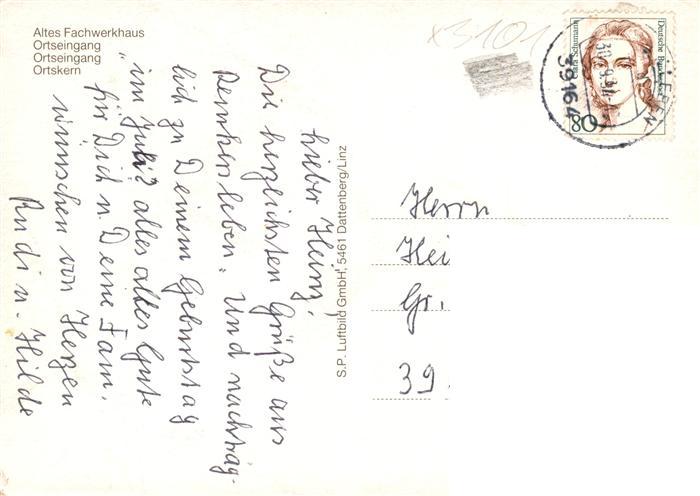 Altes Fachwerkhaus
Ortseingang
Ortseingang
Ortskern
Lieber Heinz,
Die herzlichsten Grüße aus
Remkersleben. Und nachträg-
lich zu Deinem Geburtstag
"im Juli? alles alles Gute
für Dich u. Deine Fam.
wünschen von Herzen
Rudi u. Hilde
S.P. Luftbild GmbH, 5461 Dattenberg/Linz
x3101
Deutsche Bundespost
Clara Schumann
80
39164
Herrn
Hei
Gr.
39.